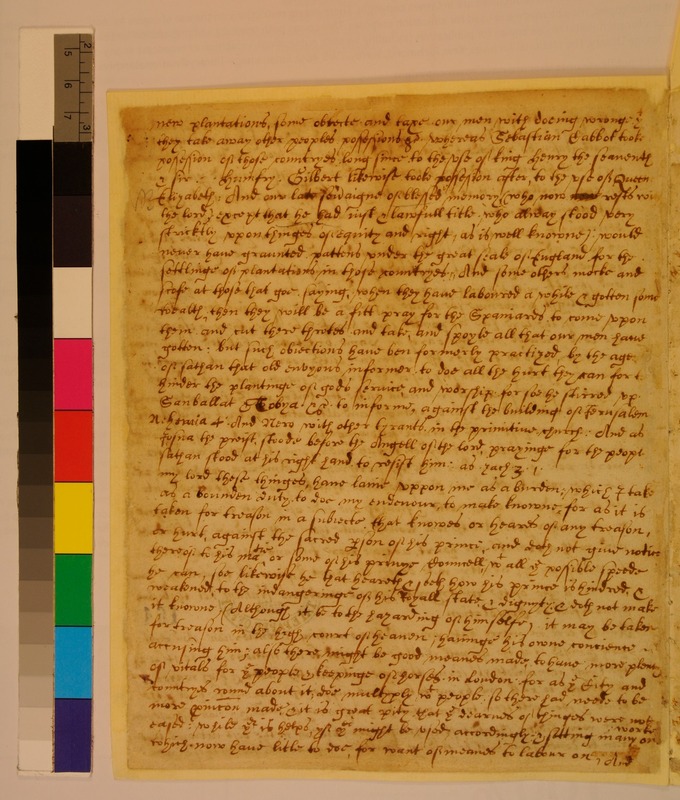 new plantations, some obiecte and taxe our men with doeing wronge y
they take away other peoples possessions &c. whereas Sebastian Cabbol tooke
possesion of those countryes long since to the use of king Henry the seauenth
& sir Humfry Gilbert likewise took possesion after, to the use of Queen
Elizabeth: And our late soveraigne of blessed memory (who now rests wi
the lord) except that he had just & lawfull title, who allway stood very
stricktly uppon thinges of equity and right, as is well knowne) would
never have graunted pattens under the great seale of England for the
settlinge of plantations in those countryes, And some others mocke and
scofe at those that goe, saying, when they have laboured a while & gotten some
wealth, then they will be a fitt pray for the Spaniards to come upon
them and cut there throtes and take, and spoyle all that our men have
gotten: but such obiections have ben formerly practized, by the age
of sathan that old envyous informer, to doe all the hurt they can for t
hinder the plantinge of gods service and worship. for soe he stirred up
Sanballat & Tobya &c. to informe, against the building of Jerusalem
Nehemia 4. And Nero with other tyrants, in the primitive church: And as
the preist, stoode before the Angell of the lord, prayinge for the peopl
sathan stood at his right hand to resist him: as Zach 3. 1.
my lord these thinges, have laine uppon me as a burden, which I take
as a bounden duty, to doe my endevour, to make knowne, for as it is
taken for treason in a subiecte, that knowes, or heares of any treason,
or hurt, against the sacred pson of his prince, and doth not give notice
thereof to his matie or some of his privye Counsell, with all ye possible speede
he can, soe likewise he that heareth & seeth how his prince is hindred, &
weakened, to the indangeringe of his royall state & dignity & doth not make
it knowne (Although it be to the hazarding of himselfe) it may be taken
for treason in the high court of heaven; haveinge his owne concience
accusing him; also there might be good meanes made, to have more plenty
of vitals for ye people & keepinge of horses in London: for as ye Citty and
countryes round about it, doe multyply wth people, so there had neede to be
more pvicon made, & it is great pity that ye dearnes of thinges were not
eased, while ye is helps, yf yt might be used accordingly: & setting many on worke
which now have little to doe, for want of meanes to labour on. And